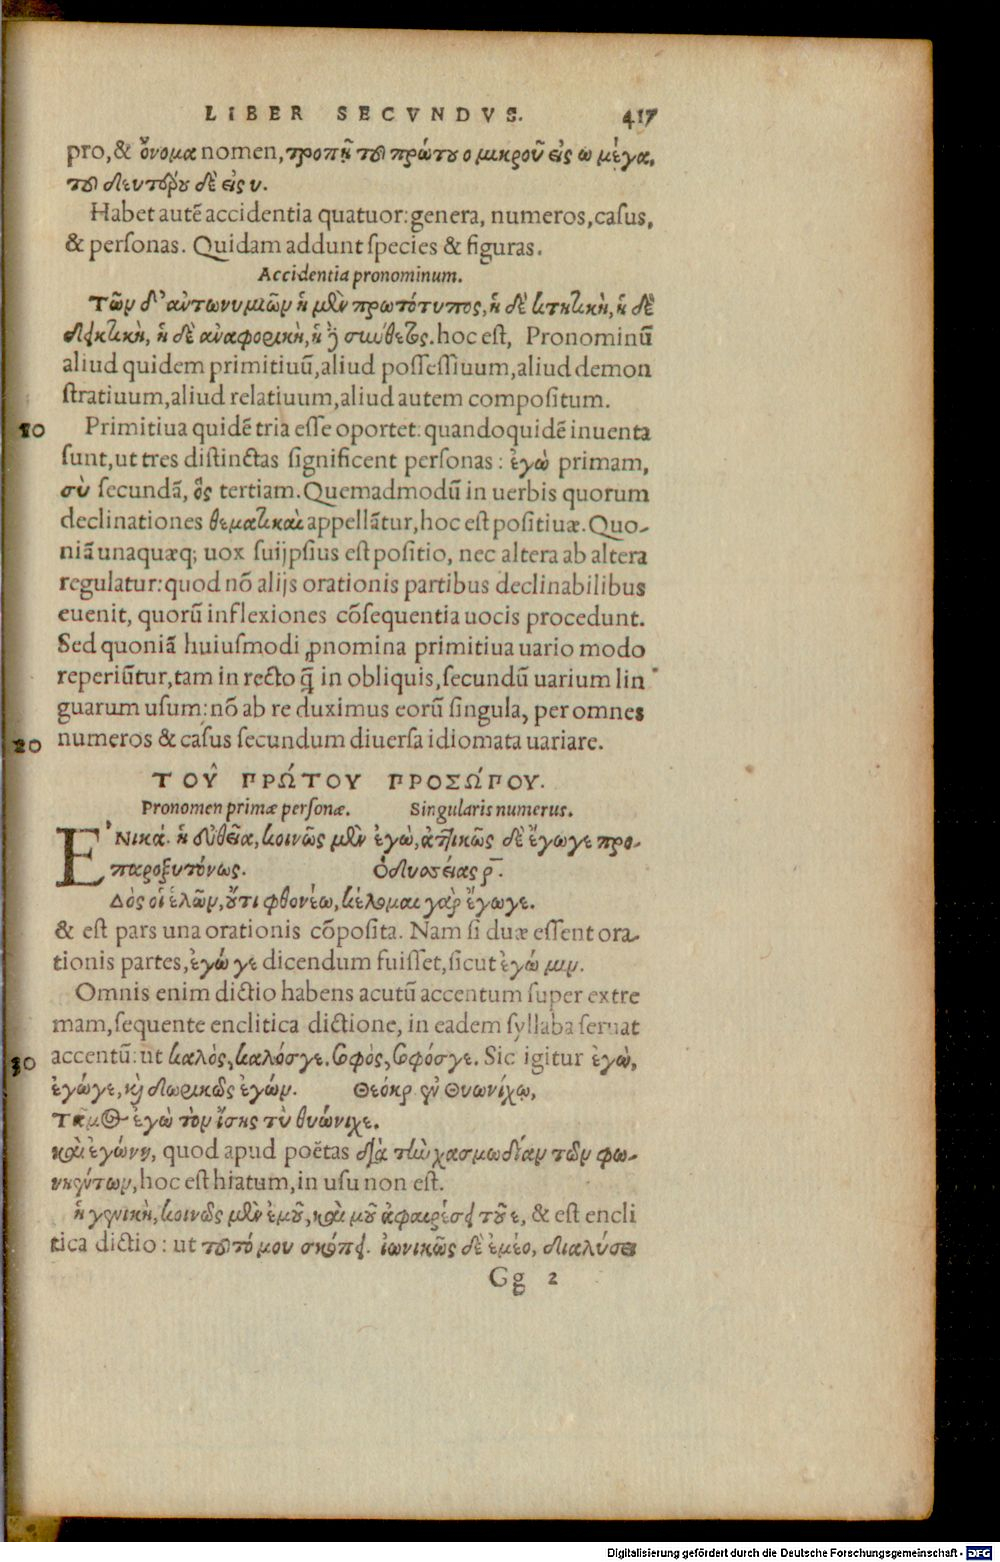 LIBER SECVNDVS. 417
pro, & ὄνομα nomen, τροπῇ τοῦ πρώτου ο μικροῦ εἰς ω μέγα,
τοῦ δευτέρου δὲ εἰς υ.
Habet autē accidentia quatuor: genera, numeros, casus,
& personas. Quidam addunt species & figuras.
Accidentia pronominum.
Τῶν δ' ἀντωνυμιῶν ἡ μὲν πρωτότυπος, ἡ δὲ κτητικὴ, ἡ δὲ
δεικτικὴ, ἡ δὲ ἀναφορικὴ, ἡ δὲ σύνθετος. hoc est, Pronominū
aliud quidem primitiuū, aliud possessiuum, aliud demon
stratiuum, aliud relatiuum, aliud autem compositum.
10 Primitiua quidē tria esse oportet: quandoquidē inuenta
sunt, ut tres distinctas significent personas: ἐγὼ primam,
σὺ secundā, ὃς tertiam. Quemadmodū in uerbis quorum
declinationes θεματικαὶ appellātur, hoc est positiuæ. Quo-
niā unaquæq; uox suijpsius est positio, nec altera ab altera
regulatur: quod nō alijs orationis partibus declinabilibus
euenit, quorū inflexiones cōsequentia uocis procedunt.
Sed quoniā huiusmodi ꝓnomina primitiua uario modo
reperiūtur, tam in recto q̄ in obliquis, secundū uarium lin
guarum usum: nō ab re duximus eorū singula, per omnes
20 numeros & casus secundum diuersa idiomata uariare.
ΤΟΥ͂ ΠΡΏΤΟΥ ΠΡΟΣΏΠΟΥ.
Pronomen primæ personæ. Singularis numerus.
ἙΝικά. ἡ εὐθεῖα, κοινῶς μὲν ἐγὼ, ἀττικῶς δὲ ἔγωγε προ-
παροξυτόνως. Ὀδυσσείας ρ̄.
Δὸς οἱ ἑλῶν, οὔτι φθονέω, κέλομαι γὰρ ἔγωγε.
& est pars una orationis cōposita. Nam si duæ essent ora-
tionis partes, ἐγώ γε dicendum fuisset, sicut ἐγώ μιν.
Omnis enim dictio habens acutū accentum super extre
mam, sequente enclitica dictione, in eadem syllaba seruat
30 accentū: ut καλὸς, καλόσγε. σοφὸς, σοφόσγε. Sic igitur ἐγὼ,
ἐγώγε, καὶ δωρικῶς ἐγών. Θεόκρ ἐν Θυωνίχῳ,
Τῆμος ἐγὼ τὸν ἴσης τὺ θυώνιχε.
καὶ ἐγώνη, quod apud poëtas διὰ τὴν χασμωδίαν τῶν φω-
νηέντων, hoc est hiatum, in usu non est.
ἡ γενικὴ, κοινῶς μὲν ἐμοῦ, καὶ μοῦ ἀφαιρέσει τοῦ ε, & est encli
tica dictio: ut τοῦτό μου σκόπει. ἰωνικῶς δὲ ἐμέο, διαλύσει
Gg 2
Digitalisierung gefördert durch die Deutsche Forschungsgemeinschaft - DFG